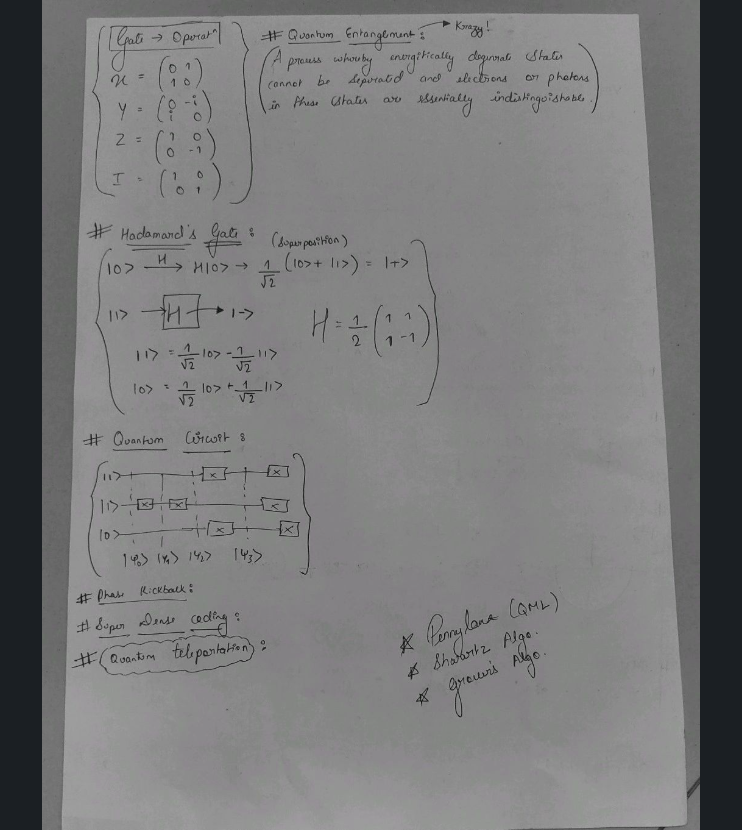 Gate → Operatⁿ
X = (0 1
1 0)
Y = (0 -i
i 0)
Z = (1 0
0 -1)
I = (1 0
0 1)
# Quantum Entanglement : → Krazy!
(A process whereby energitically degenrate states
cannot be seperated and electrons or photons
in these states are essentially indistingoishable.)
# Hadamard's Gate : (Superposition)
|0> —H→ H|0> → 1/√2 (|0> + |1>) = |+>
|1> → H → |->
H = 1/2 (1 1
1 -1)
|1> = 1/√2 |0> - 1/√2 |1>
|0> = 1/√2 |0> + 1/√2 |1>
# Quantum Circuit :
|1> x x
|1> x x x
|0> x x
|Ψ₀> |Ψ₁> |Ψ₂> |Ψ₃>
# Phase Kickback :
# Super Dense coding :
# Quantum teleportation :
* Pennylane (QML)
* Algo.
* Algo.